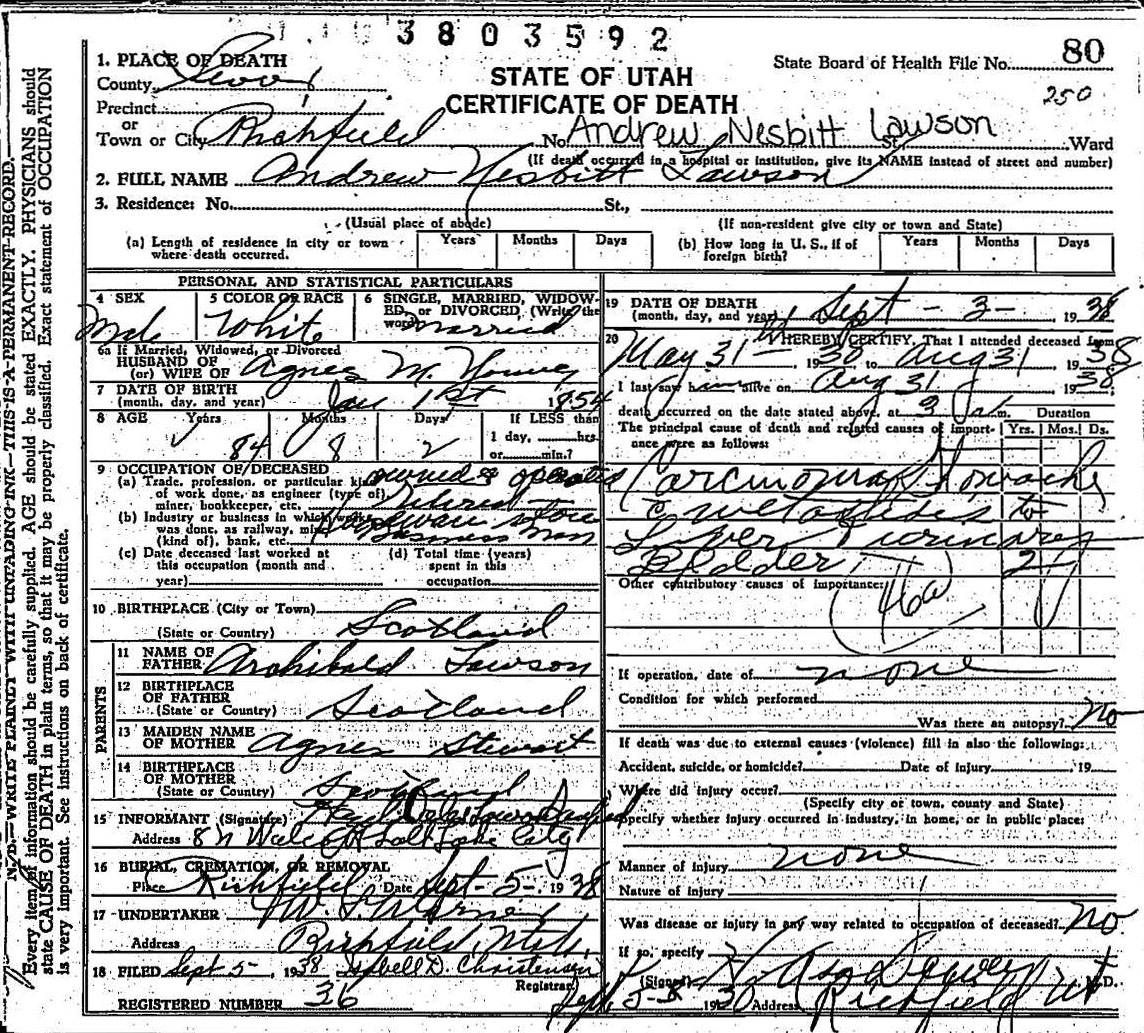 3803592
1. PLACE OF DEATH
County
STATE OF UTAH
CERTIFICATE OF DEATH
State Board of Health File No. 80
250
Precinct
or
Town or City Richfield No. Andrew Nesbitt Lawson St. Ward
(If death occurred in a hospital or institution, give its NAME instead of street and number)
2. FULL NAME Andrew Nesbitt Lawson
3. Residence: No. St.,
(Usual place of abode) (If non-resident give city or town and State)
(a) Length of residence in city or town where death occurred. Years Months Days (b) How long in U. S., if of foreign birth? Years Months Days
PERSONAL AND STATISTICAL PARTICULARS
4 SEX 5 COLOR OR RACE 6 SINGLE, MARRIED, WIDOWED, or DIVORCED (Write the word)
Male White Married
6a If Married, Widowed, or Divorced
HUSBAND OF
(or) WIFE OF Agnes M.
7 DATE OF BIRTH
(month, day, and year) Jan 1st 1854
8 AGE Years Months Days If LESS than
84 8 2 1 day, hrs.
or min.?
9 OCCUPATION OF DECEASED
(a) Trade, profession, or particular kind
of work done, as engineer (type of)
miner, bookkeeper, etc. owned & operated
(b) Industry or business in which work
was done, as railway, mine
(kind of), bank, etc. Hardware store
Business man
(c) Date deceased last worked at
this occupation (month and
year)
(d) Total time (years)
spent in this
occupation
10 BIRTHPLACE (City or Town)
(State or Country) Scotland
PARENTS
11 NAME OF
FATHER Archibald Lawson
12 BIRTHPLACE
OF FATHER
(State or Country) Scotland
13 MAIDEN NAME
OF MOTHER Agnes Stewart
14 BIRTHPLACE
OF MOTHER
(State or Country) Scotland
15 INFORMANT (Signature)
Address 8 N Salt Lake City
16 BURIAL, CREMATION, OR REMOVAL
Place Richfield Date Sept-5- 1938
17 UNDERTAKER
Address Richfield, Utah
18 FILED Sept 5-, 1938 D. Christensen
Registrar
REGISTERED NUMBER 36
19 DATE OF DEATH
(month, day, and year) Sept-3- 1938
20 I HEREBY CERTIFY, That I attended deceased from
May 31- 1938 to Aug 31 1938
I last saw him alive on Aug 31 1938
death occurred on the date stated above, at 3 a.m. Duration
The principal cause of death and related causes of importance were as follows: Yrs. Mos. Ds.
Carcinoma Stomach
c metastises to
Liver urinary
Bladder 2
Other contributory causes of importance:
46a
If operation, date of none
Condition for which performed
Was there an autopsy? No
If death was due to external causes (violence) fill in also the following:
Accident, suicide, or homicide? Date of injury , 19
Where did injury occur?
(Specify city or town, county and State)
Specify whether injury occurred in industry, in home, or in public place:
Manner of injury none
Nature of injury
Was disease or injury in any way related to occupation of deceased? No
If so, specify
(Signed) M.D.
Address Richfield Ut
N.B.—WRITE PLAINLY WITH UNFADING INK—THIS IS A PERMANENT RECORD.
Every item of information should be carefully supplied. AGE should be stated EXACTLY. PHYSICIANS should
state CAUSE OF DEATH in plain terms, so that it may be properly classified. Exact statement of OCCUPATION
is very important. See instructions on back of certificate.